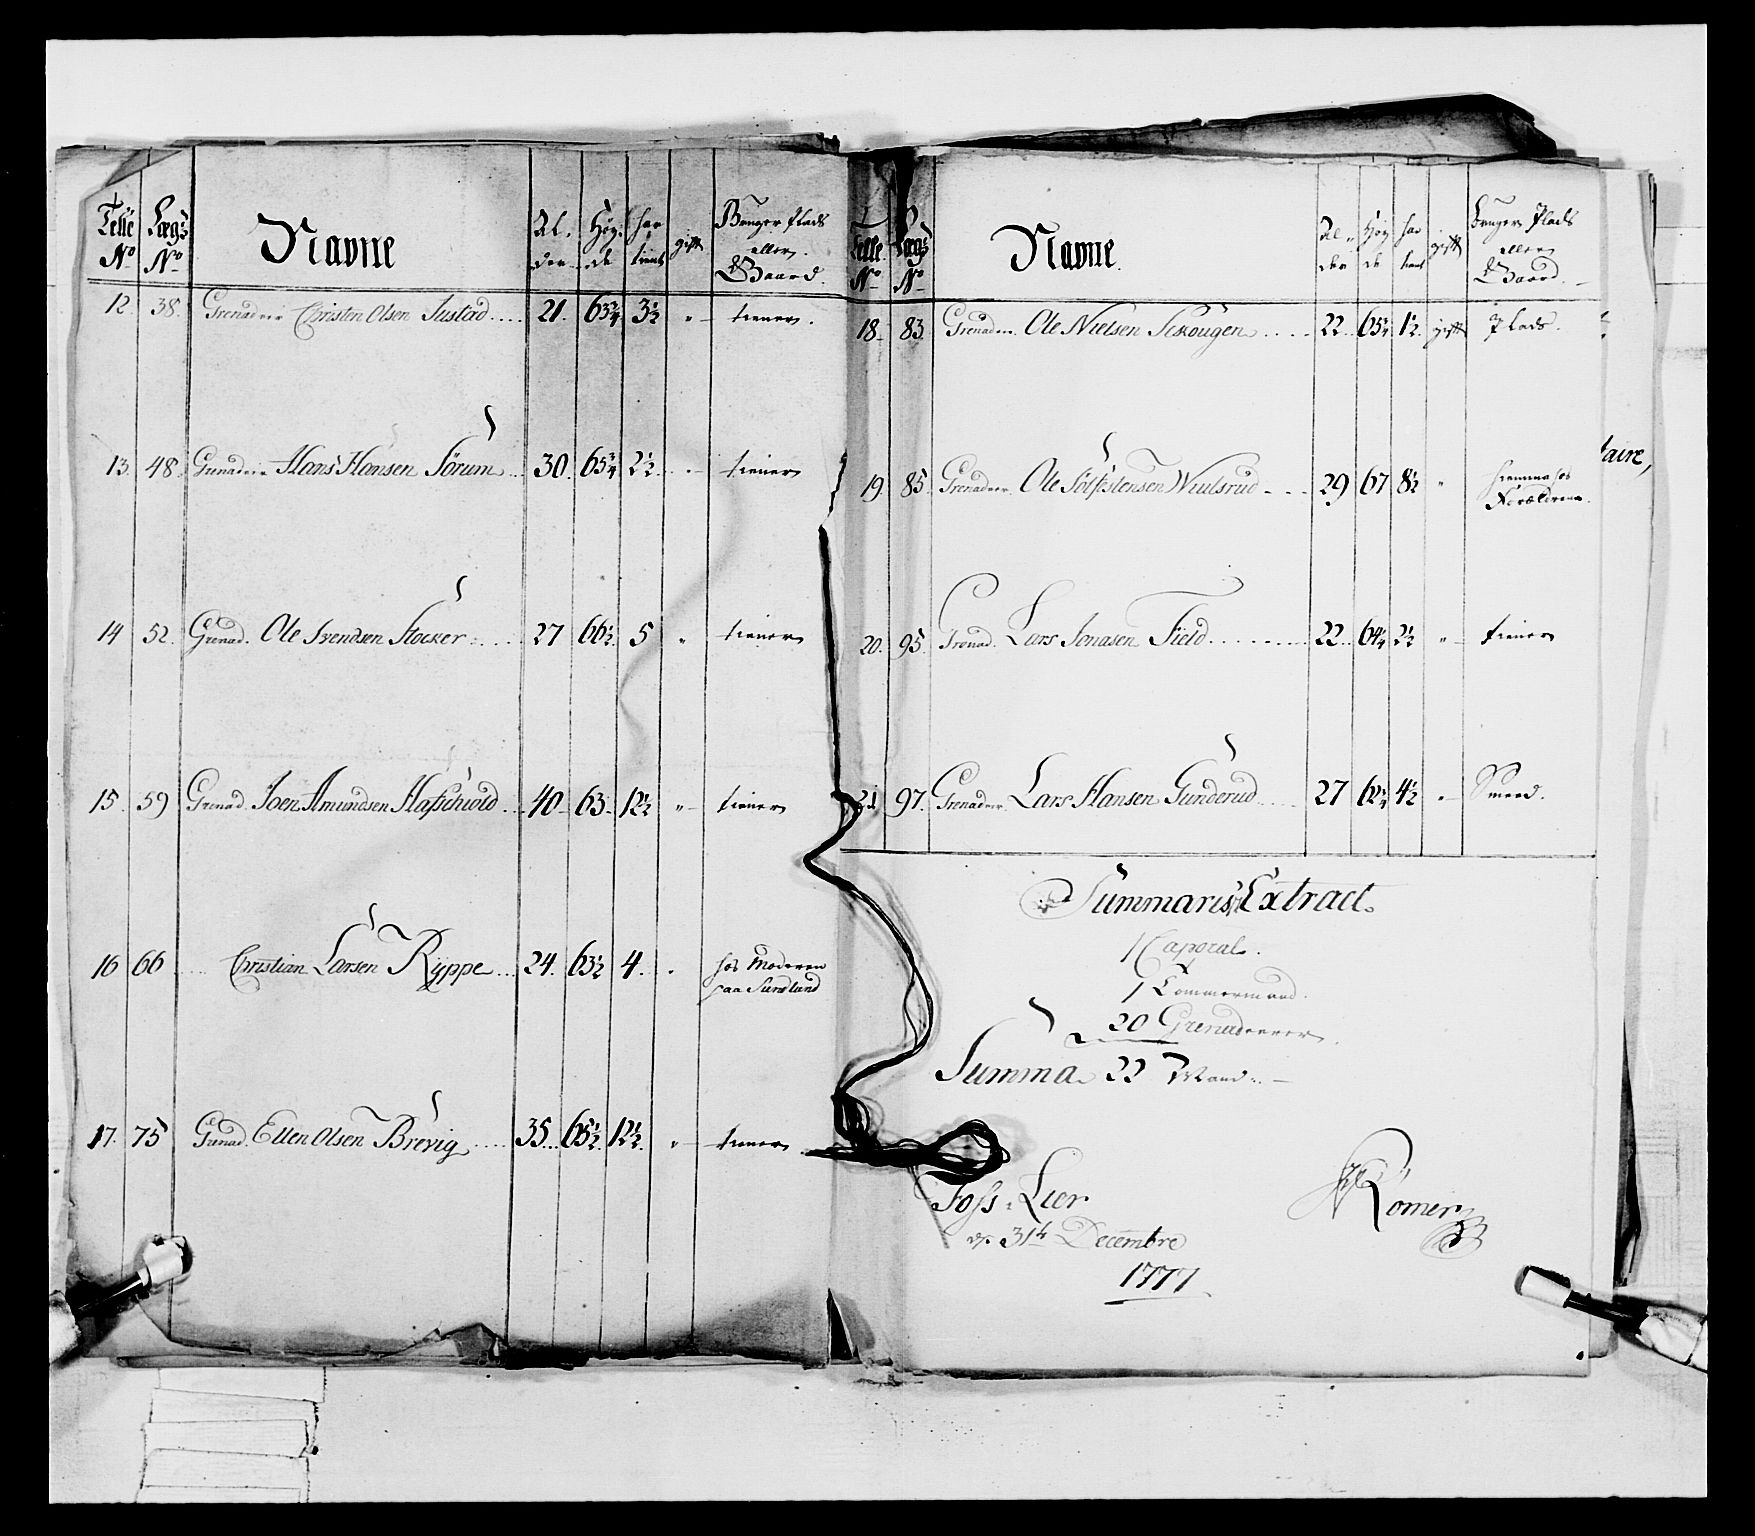 Telle No Lægs No Navne Alder Høyde har tient gift Bruger Plads eller Gaard.
12. 38. Grenadeer Christen Olsen Justad.... 21. 63¾ 3½ " tiener.
13. 48. Grenadeer Hans Hansen Sørum... 30. 65¾ 2½ " tiener
14 52. Grenad. Ole Svendsen Stocker..... 27 66½ 5 " tiener
15. 59 Grenad. Joen Amundsen Hafschiold... 40. 63. 12½ " tiener
16 66 .... Christian Larsen Ryppe... 24. 63½ 4. " hos Moderen
paa Sundland
17. 75 Grenad. Ellen Olsen Brevig..... 35... 65½ 12½. " tiener.
Telle No Lægs No Navne. Alder Høyde har tient gift Bruger Plads eller Gaard.
18. 83. Grenadeer. Ole Nielsen Skougen.... 22. 65¾ 1½. gift Plads.
19. 85. Grenadeer. Ole Wiulsrud.... 29 67 8½ " hiemme hos
Forældrene.
20. 95. Grenad. Lars Jonasen Field........ 22. 64¼ 2½ " tiener
21 97. Grenadeer Lars Hansen Gunderud.... 27 62¾ 4½ " Smed.
Summarisk Extract.
1 Caporal.
1 Tømmermand.
20 Grenadeerer.
Summa 22 Mand.
Foss i Lier
d. 31te Decembre
1777
Römer
taire,